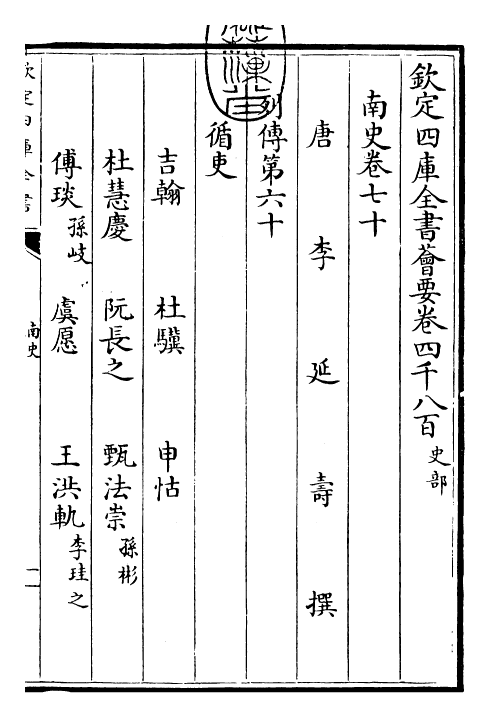 欽定四庫全書薈要卷四千八百 史部
南史卷七十
唐 李 延 壽 撰
列傳第六十
循吏
吉翰 杜驥 申恬
杜慧慶 阮長之 甄法崇 孫彬
傅琰 孫岐 虞愿 王洪軌 李珪之
欽定四庫全書
南史
一